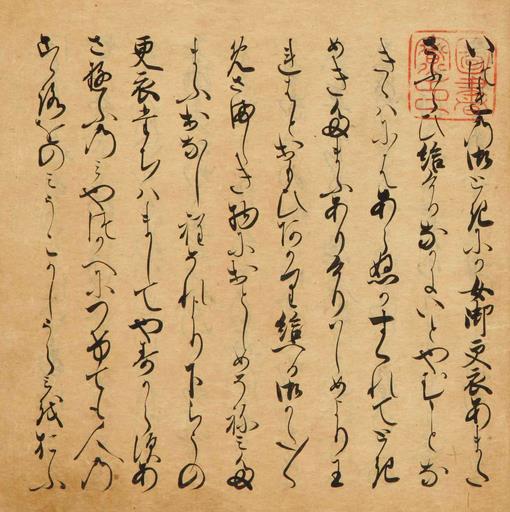 いつれの御ときにか女御更衣あまた
さふらひ給けるなかにいとやむことな
きゝはにはあらぬかすくれてとき
めきたまふありけりはしめよりわ
れはとおもひあかり給へる御かた〱
めさましき物におとしめそねみた
まふおなし程それより下らうの
更衣たちはましてやすからすあ
さゆふのみやつかへにつけても人の
こゝろをのみうこかしうらみをおふ